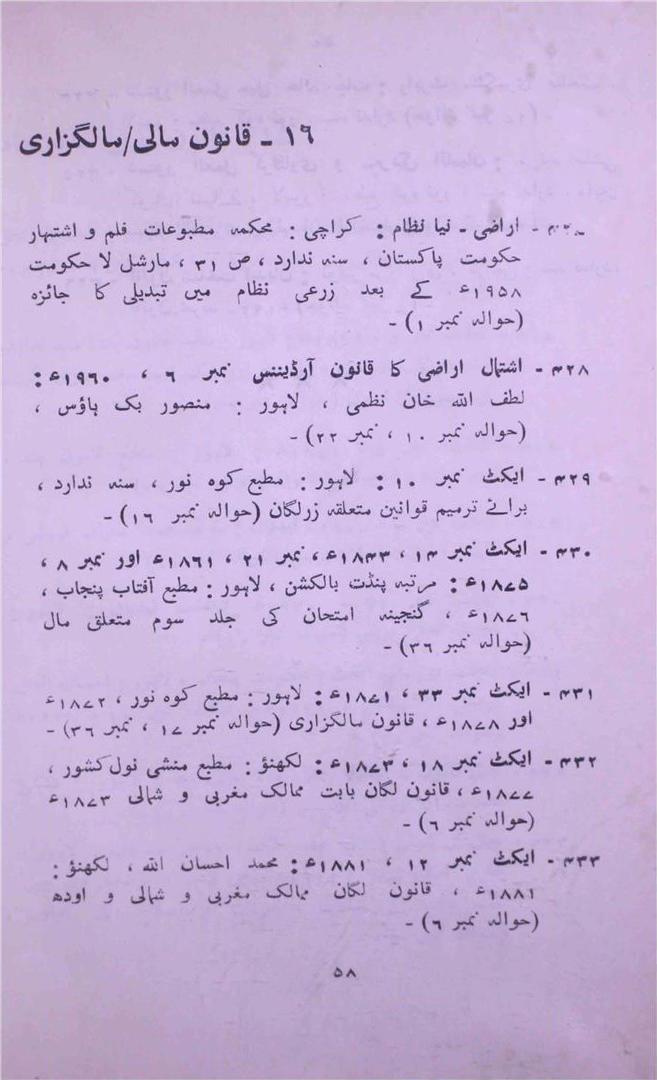 ۱۶ - قانون مالی/مالگزاری
۴۲۷ - اراضی - نیا نظام : کراچی : محکمہ مطبوعات فلم و اشتہار
حکومت پاکستان ، سنہ ندارد ، ص ۳۱ ، مارشل لا حکومت
۱۹۵۸ء کے بعد زرعی نظام میں تبدیلی کا جائزہ
(حوالہ نمبر ۱) -
۴۲۸ - اشتمال اراضی کا قانون آرڈیننس نمبر ۶ ، ۱۹۶۰ء :
لطف اللہ خان نظمی ، لاہور : منصور بک ہاؤس ،
(حوالہ نمبر ۱۰ ، نمبر ۲۲) -
۴۲۹ - ایکٹ نمبر ۱۰ : لاہور : مطبع کوہ نور ، سنہ ندارد ،
برائے ترمیم قوانین متعلقہ زرلگان (حوالہ نمبر ۱۶) -
۴۳۰ - ایکٹ نمبر ۱۴ ، ۱۸۴۳ء ، نمبر ۲۱ ، ۱۸۶۱ء اور نمبر ۸ ،
۱۸۷۵ء : مرتبہ پنڈت بالکشن ، لاہور : مطبع آفتاب پنجاب ،
۱۸۷۶ء ، گنجینہ امتحان کی جلد سوم متعلق مال
(حوالہ نمبر ۳۶) -
۴۳۱ - ایکٹ نمبر ۳۳ ، ۱۸۷۱ء : لاہور : مطبع کوہ نور ، ۱۸۷۲ء
اور ۱۸۷۸ء ، قانون مالگزاری (حوالہ نمبر ۱۷ ، نمبر ۳۶) -
۴۳۲ - ایکٹ نمبر ۱۸ ، ۱۸۷۳ء : لکھنؤ : مطبع منشی نول کشور ،
۱۸۷۷ء ، قانون لگان بابت ممالک مغربی و شمالی ۱۸۷۳ء
(حوالہ نمبر ۶) -
۴۳۳ - ایکٹ نمبر ۱۲ ، ۱۸۸۱ء : محمد احسان اللہ ، لکھنؤ :
۱۸۸۱ء ، قانون لگان ممالک مغربی و شمالی و اودھ
(حوالہ نمبر ۶) -
۵۸